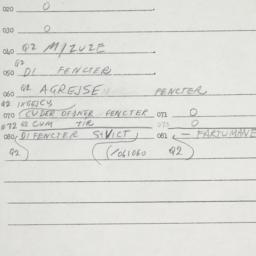 020 0
030 0
040 G2 M/ZUZE
G2
050 DI FENCTER
060 G2 AGREJSE FENCTER
G2 INGEJCY
070 CUDER OFONER FENCTER 071 0
072 G2 CUM TIR 073 0
080 DI FENCTER SIVICT 081 — FARTUMANE
G2 (/061060 G2)